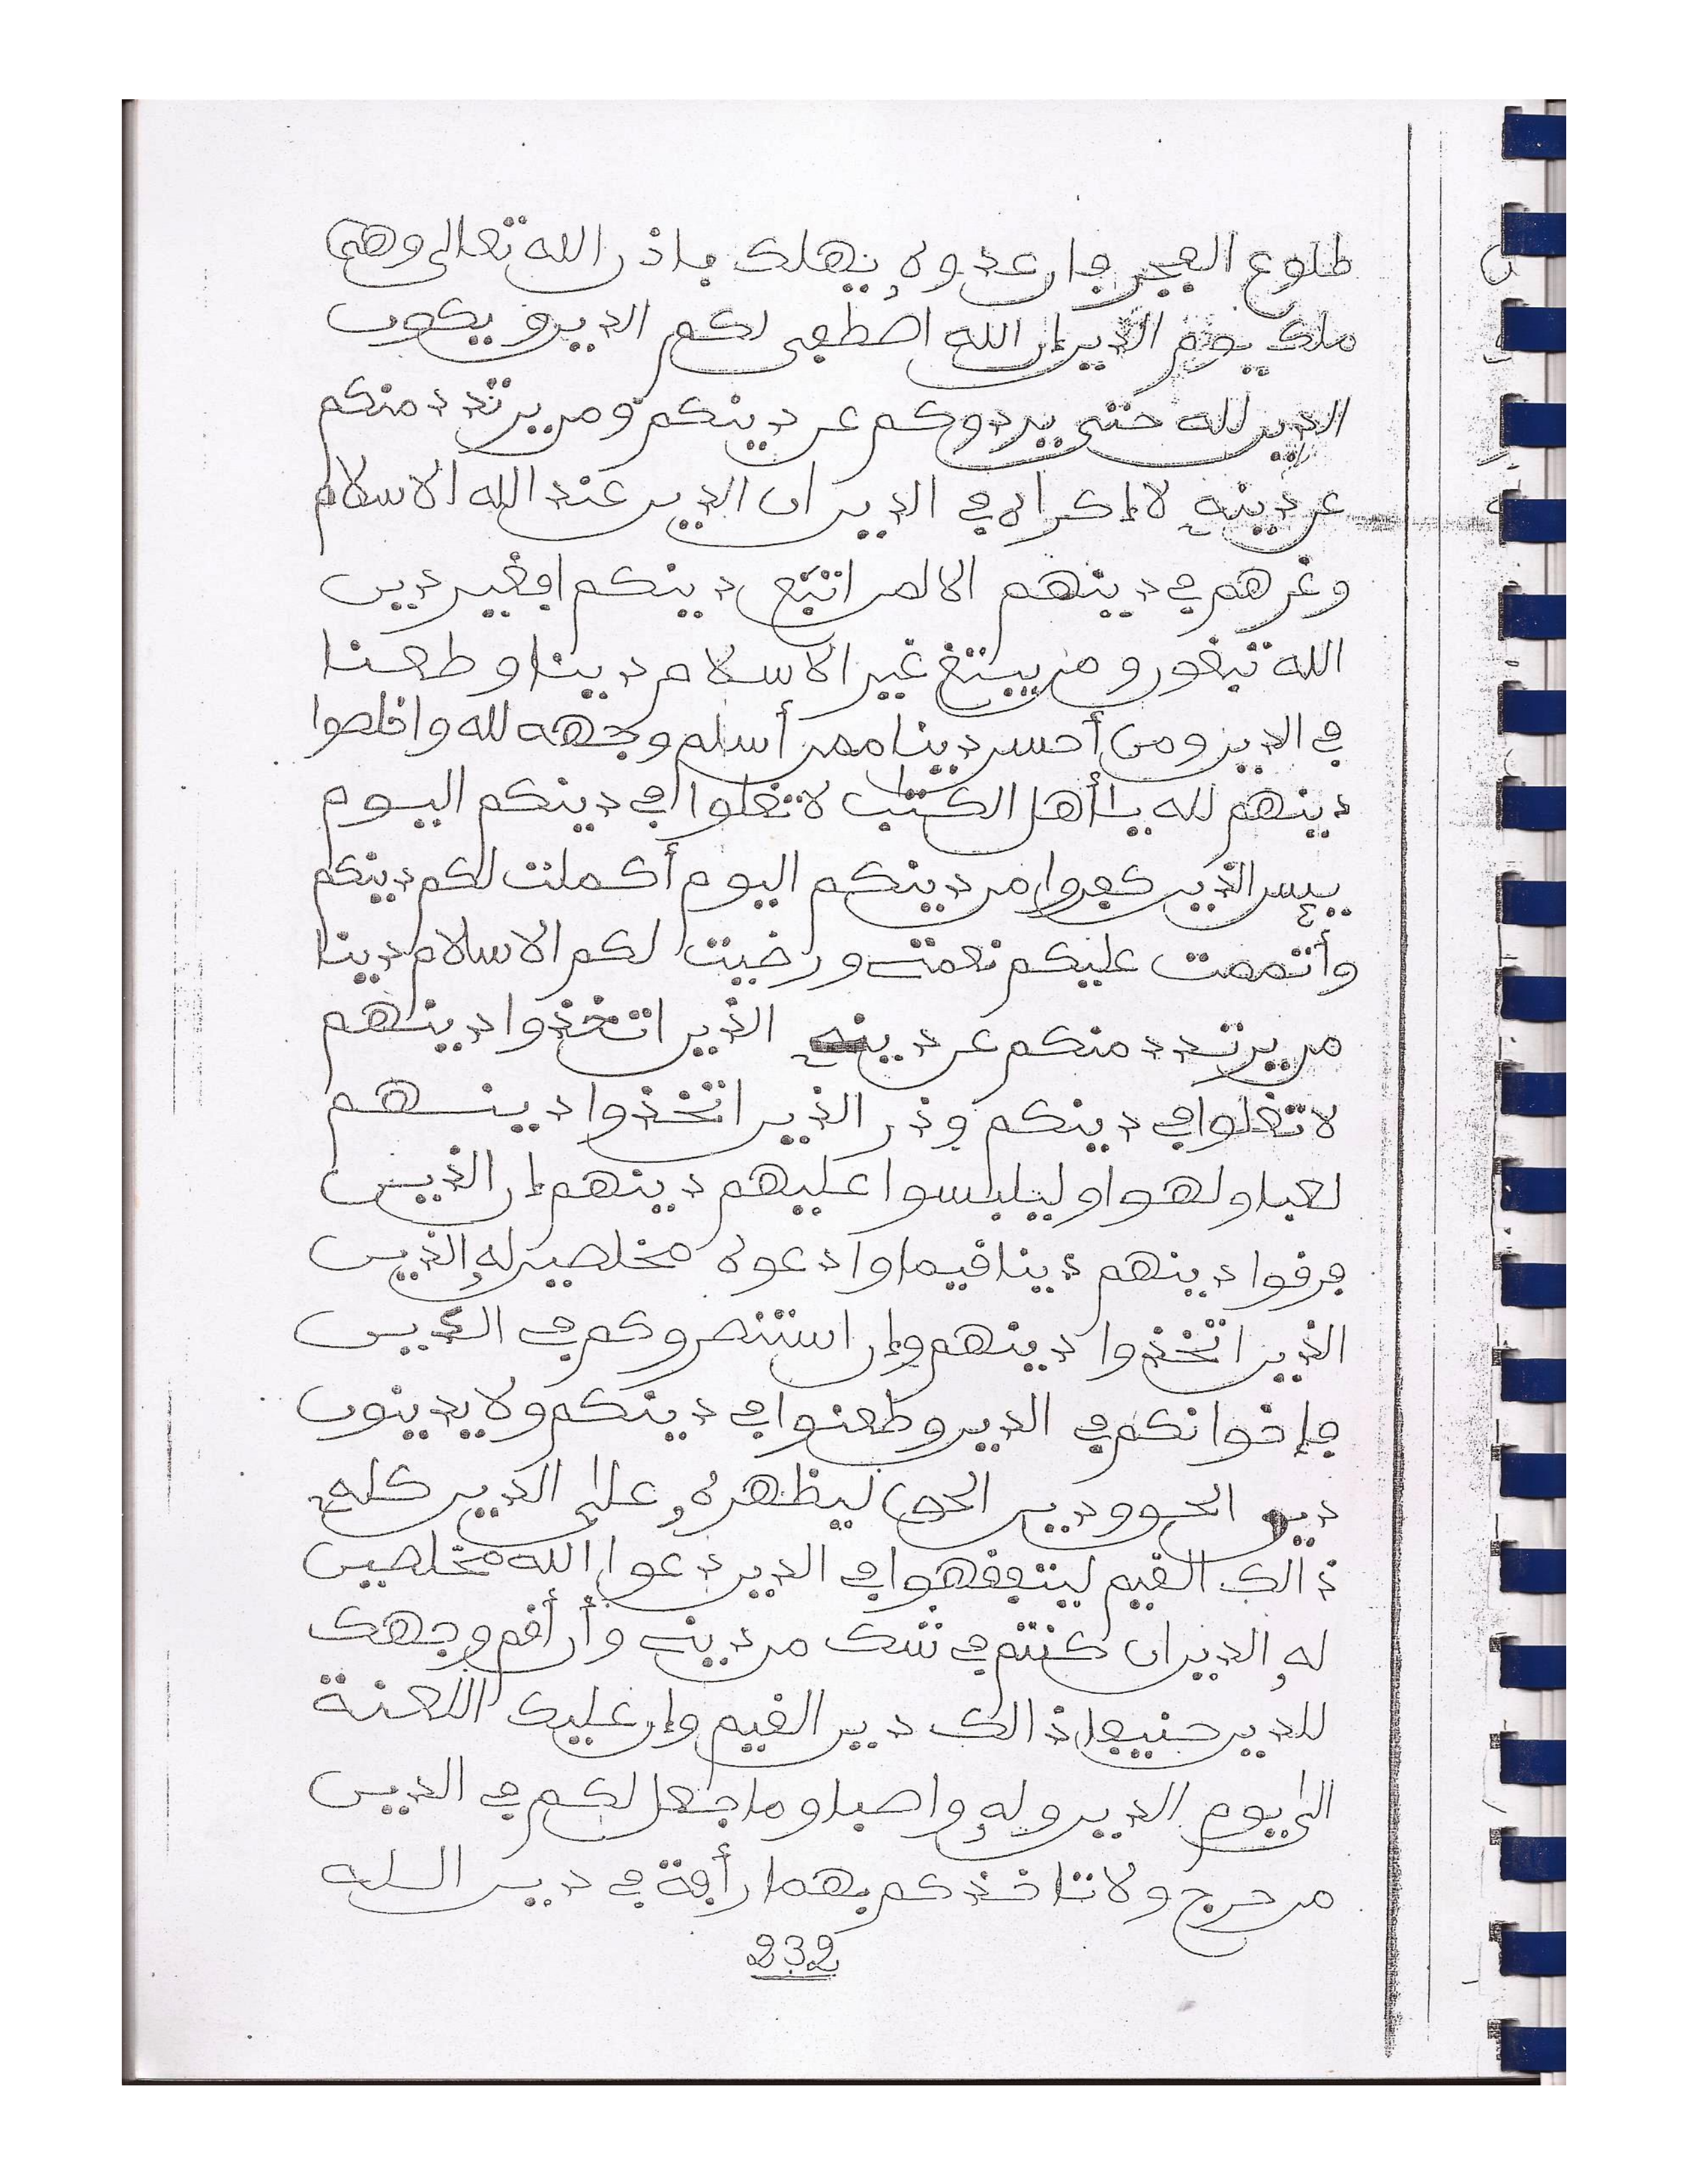 طلوع الفجر فإن عدوه يهلك بإذن الله تعالى وهي
ملك يوم الدين إن الله اصطفى لكم الدين ويكون
الدين لله حتى يردوكم عن دينكم ومن يرتدد منكم
عن دينه لا إكراه في الدين ان الدين عند الله الاسلام
وغرهم في دينهم الا لمن اتبع دينكم افغير دين
الله تبغون ومن يبتغ غير الاسلام دينا وطعنا
في الدين ومن أحسن دينا ممن أسلم وجهه لله واخلصوا
دينهم لله يا أهل الكتب لا تغلوا في دينكم اليوم
يئس الذين كفروا من دينكم اليوم أكملت لكم دينكم
وأتممت عليكم نعمتي ورضيت لكم الاسلام دينا
من يرتدد منكم عن دينه الذين اتخذوا دينهم
لا تغلوا في دينكم وذر الذين اتخذوا دينهم
لعبا ولهوا وليلبسوا عليهم دينهم إن الذين
فرقوا دينهم دينا قيما وادعوه مخلصين له الذين
الذين اتخذوا دينهم وإن استنصروكم في الدين
فإخوانكم في الدين وطعنوا في دينكم ولا يدينون
دين الحق ودين الحق ليظهره على الدين كله
ذالك القيم ليتفقهوا في الدين دعوا الله مخلصين
له الدين ان كنتم في شك من ديني وأن أقم وجهك
للدين حنيفا ذالك دين القيم وإن عليك اللعنة
الى يوم الدين وله واصبا وما جعل لكم في الدين
من حرج ولا تاخذكم بهما رأفة في دين الله
232